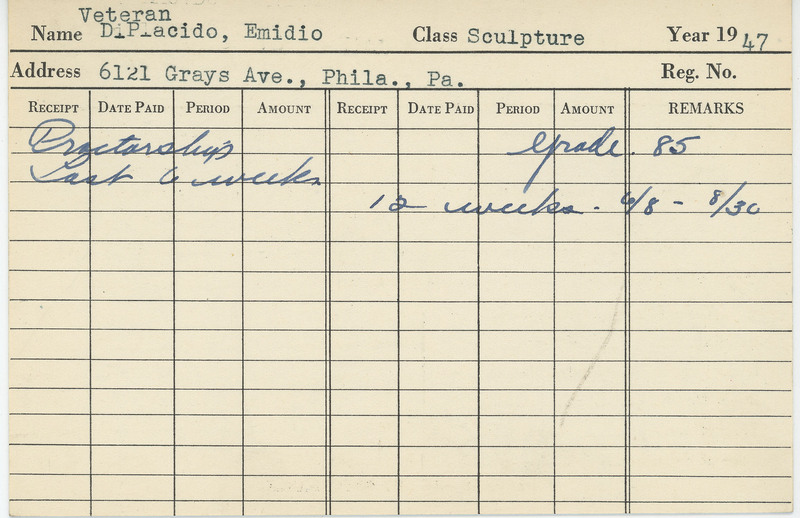 Veteran
Name DiPlacido, Emidio Class Sculpture Year 1947
Address 6121 Grays Ave., Phila., Pa. Reg. No.
RECEIPT DATE PAID PERIOD AMOUNT RECEIPT DATE PAID PERIOD AMOUNT REMARKS
Proctorship Grade. 85
Last 6 weeks
12 weeks - 6/8 - 8/30